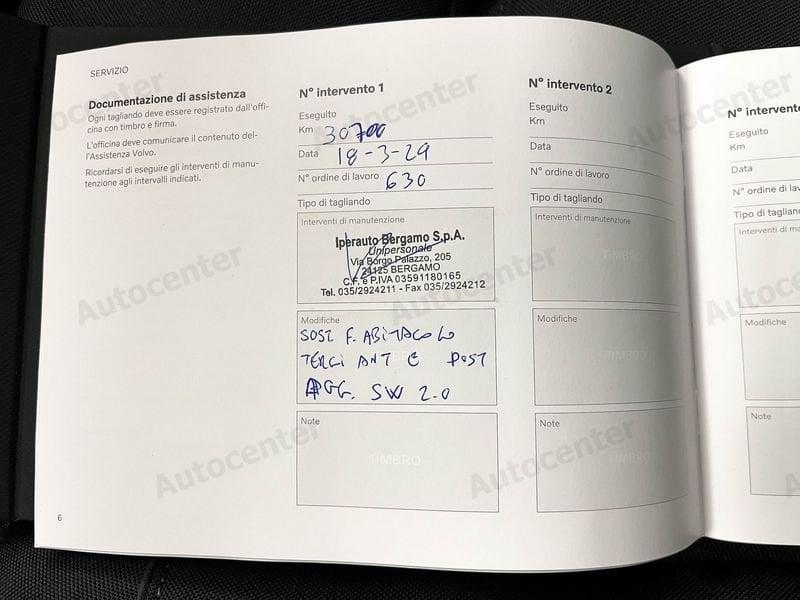 SERVIZIO
Documentazione di assistenza
Ogni tagliando deve essere registrato dall'offi-
cina con timbro e firma.
L'officina deve comunicare il contenuto del-
l'Assistenza Volvo.
Ricordarsi di eseguire gli interventi di manu-
tenzione agli intervalli indicati.
6
N° intervento 1
Eseguito
Km 30700
Data 18-3-29
N° ordine di lavoro 630
Tipo di tagliando
Interventi di manutenzione
Iperauto Bergamo S.p.A.
Unipersonale
Via Borgo Palazzo, 205
24125 BERGAMO
C.F. e P.IVA 03591180165
Tel. 035/2924211 - Fax 035/2924212
Modifiche
SOST F. ABITACOLO
TERGI ANT E POST
AGG. SW 2.0
Note
TIMBRO
N° intervento 2
Eseguito
Km
Data
N° ordine di lavoro
Tipo di tagliando
Interventi di manutenzione
TIMBRO
Modifiche
TIMBRO
Note
TIMBRO
N° intervento
Eseguito
Km
Data
N° ordine di la
Tipo di tagliand
Interventi di ma
Modifiche
Note
Autocenter
Autocenter
Autocenter
Autocenter
Autocenter
Autocenter
Autocenter
Autocenter